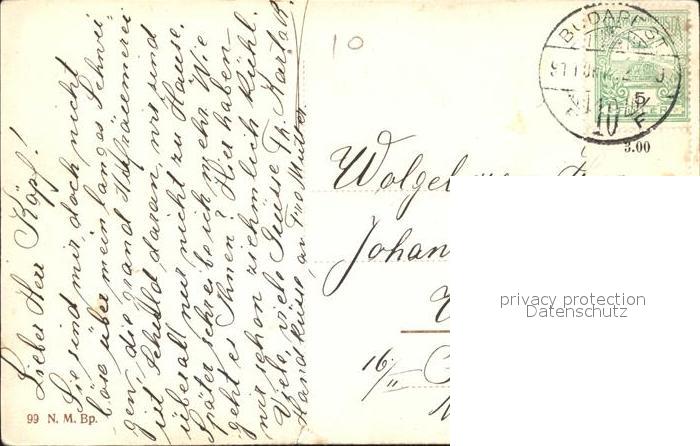 Lieber Herr Köpf!
Sie sind mir doch nicht
böse über mein langes Schwei
gen, die Hrand
ist Schuld daran, wir sind
überall nur nicht zu Hause.
Später schreibe ich mehr. Wie
geht es Ihnen? Hier haben
wir schon ziehmlich kühl.
Viele, viele Grüsse Th. Bartak
Handküsse an Frau Mutter.
10
BUDAPEST
5
F
3.00
Wolgeb
Johan
16/II
99 N. M. Bp.
privacy protection
Datenschutz